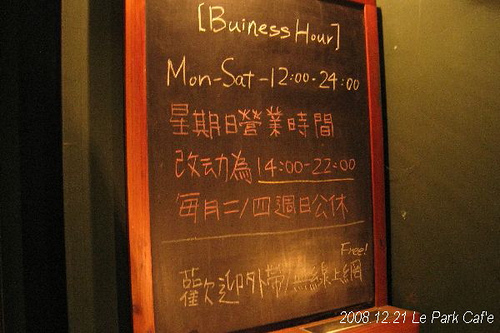 [Buiness Hour]
Mon-Sat-12:00-24:00
星期日營業時間
改动為14:00-22:00
每月二/四週日公休
Free!
歡迎外帶/無線上網
2008.12.21 Le Park Caf'e